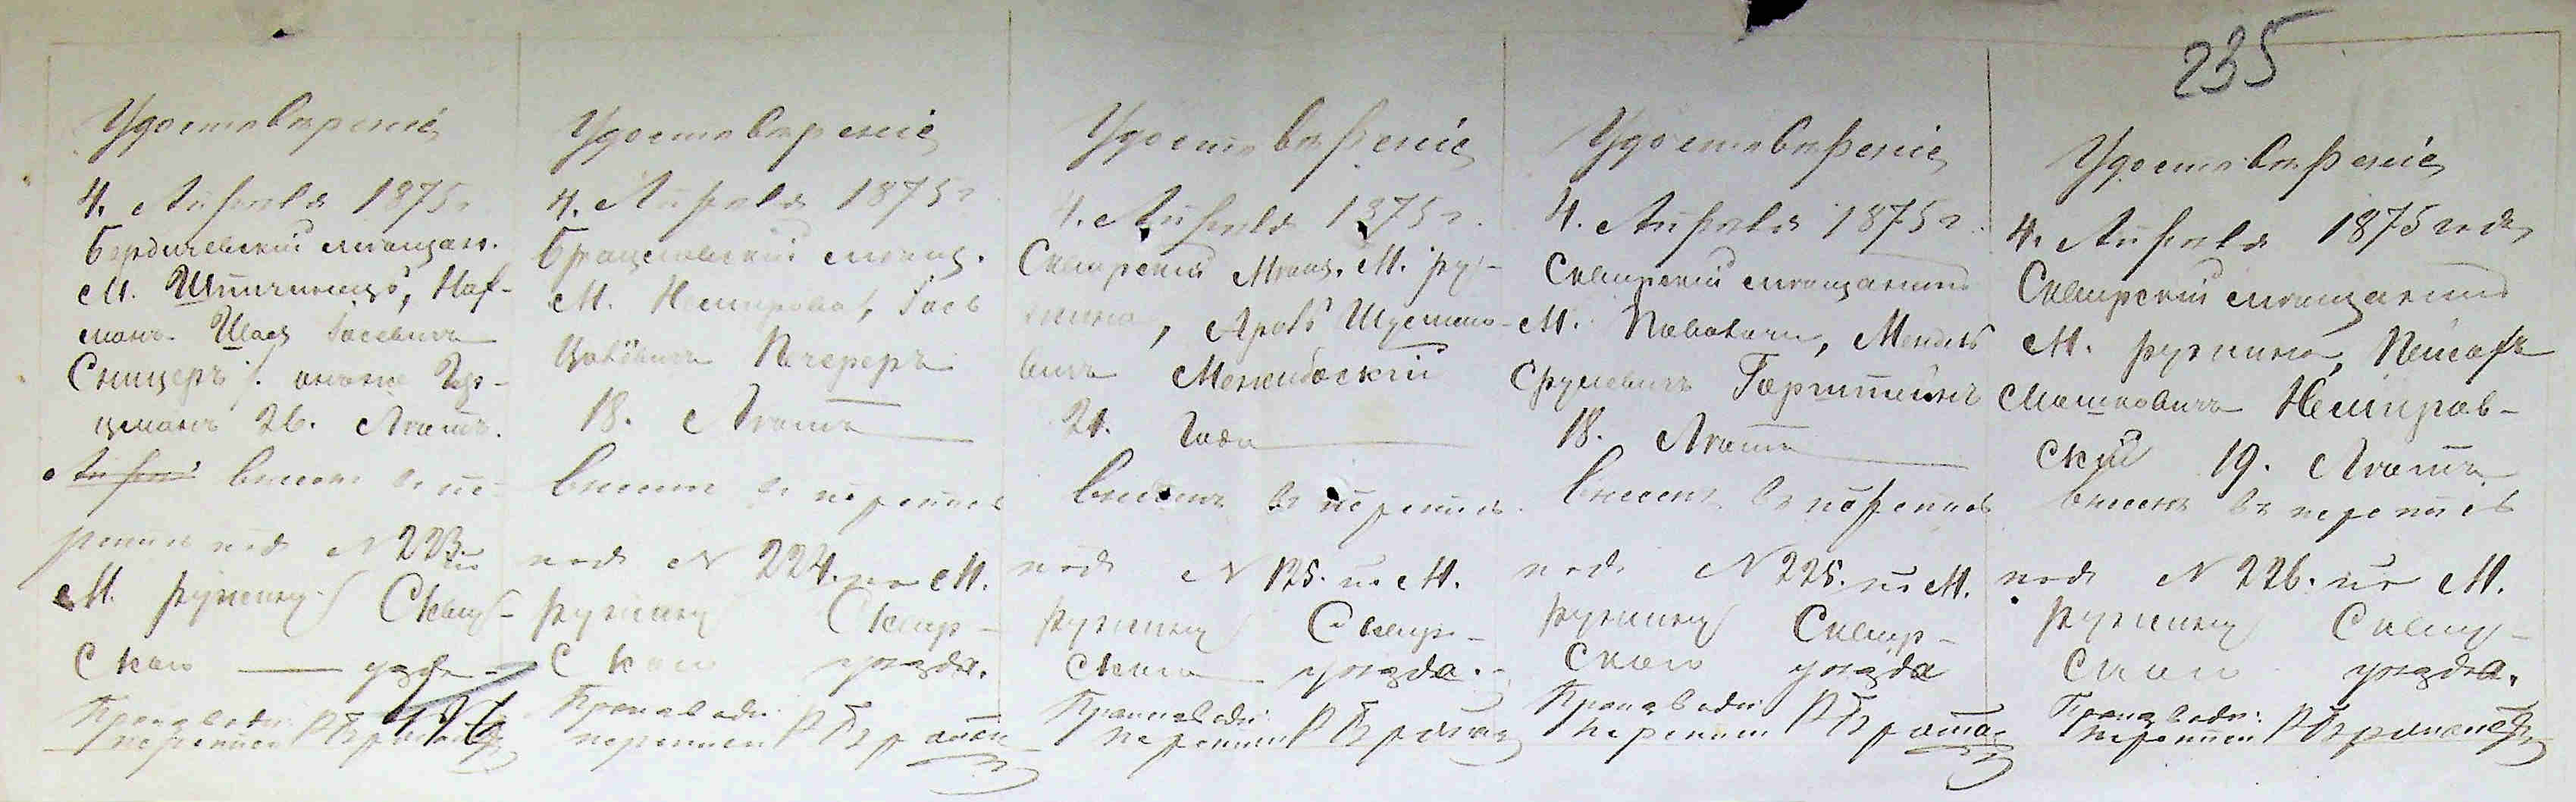 235
Удостовѣреніе
4. Апрѣля 1875 г
Бердичевскій мѣщан.
М. Шпичинецъ, Нафтуманъ Шаея Іосевичъ
Сницеръ
26. Лѣтъ.
внесенъ въ пе-
репись подъ N 223. по
М. Ружину Сквир-
скаго уѣзда
Производ. переписи
Удостовѣреніе
4. Апрѣля 1875 г
Брацлавскій мѣщ.
М. Немирова, Іось
Печереръ
18. Лѣтъ
внесенъ въ перепись
подъ N 224. по М.
Ружину Сквир-
скаго уѣзда.
Производ. переписи
Удостовѣреніе
4. Апрѣля 1875 г.
Сквирскій Мѣщ. М. Ру-
жина, Аронъ Шулимо-
вичъ Меджибоскій
21. Года
внесенъ въ перепись
подъ N 125. по М.
Ружину Сквир-
скаго уѣзда.
Производ. переписи
Удостовѣреніе
4. Апрѣля 1875 г.
Сквирскій мѣщанинъ
М. Паволочи, Мендель
Срулевичъ Горштейнъ
18. Лѣтъ
внесенъ въ перепись
подъ N 225. по М.
Ружину Сквир-
скаго уѣзда
Производ. переписи
Удостовѣреніе
4. Апрѣля 1875 года
Сквирскій мѣщанинъ
М. Ружина, Пейсахъ
Мошковичъ Немиров-
скій 19. Лѣтъ
внесенъ въ перепись
подъ N 226. по М.
Ружину Сквир-
скаго уѣзда.
Производ. переписи